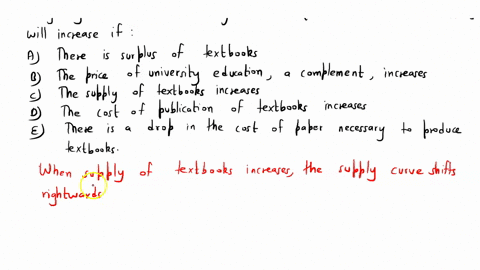 will increase if :
A) There is surplus of textbooks
B) The price of university education, a complement, increases
C) The supply of textbooks increases
D) The cost of publication of textbooks increases
E) There is a drop in the cost of paper necessary to produce
textbooks.
When supply of textbooks increases, the supply curve shifts
rightwards